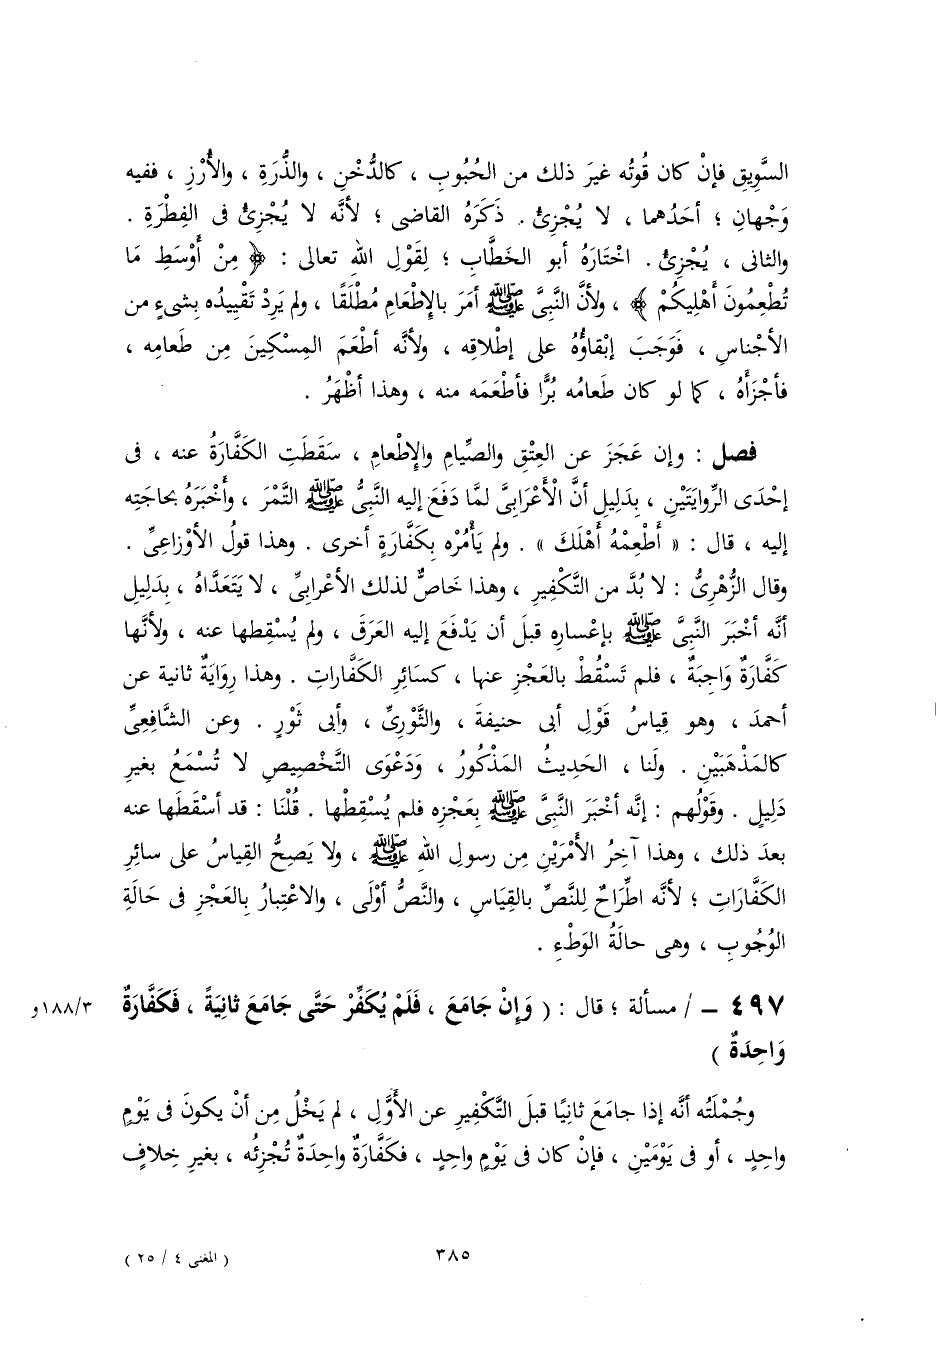 السَّوِيقِ فإنْ كان قُوتُه غيرَ ذلك من الحُبُوبِ ، كالدُّخْنِ ، والذُّرَةِ ، والأُرْزِ ، ففيه
وَجْهانِ ؛ أحَدُهما ، لا يُجْزِئُ . ذَكَرَهُ القاضى ؛ لأنَّه لا يُجْزِئُ فى الفِطْرَةِ .
والثانى ، يُجْزِئُ . اخْتَارَهُ أبو الخَطَّابِ ؛ لِقَوْلِ اللهِ تعالى : ﴿ مِنْ أَوْسَطِ مَا
تُطْعِمُونَ أَهْلِيكُمْ ﴾ ، ولأنَّ النَّبِىَّ ﷺ أمَرَ بالإِطْعامِ مُطْلَقًا ، ولم يَرِدْ تَقْيِيدُه بِشىءٍ من
الأجْناسِ ، فَوَجَبَ إبْقاؤُهُ على إطْلاقِه ، ولأنَّه أطْعَمَ المِسْكِينَ مِن طَعامِه ،
فأجْزَأَهُ ، كما لو كان طَعامُه بُرًّا فأطْعَمَه منه ، وهذا أظْهَرُ .
فصل : وإن عَجَزَ عن العِتْقِ والصِّيامِ والإِطْعامِ ، سَقَطَتِ الكَفَّارَةُ عنه ، فى
إحْدَى الرِّوايَتَيْنِ ، بدَلِيلِ أنَّ الْأَعْرَابِىَّ لمَّا دَفَعَ إليه النَّبِىُّ ﷺ التَّمْرَ ، وأخْبَرَهُ بحاجَتِه
إليه ، قال : « أَطْعِمْهُ أَهْلَكَ » . ولم يَأْمُرْه بِكَفَّارَةٍ أخرى . وهذا قولُ الأوْزاعِىِّ .
وقال الزُّهْرِىُّ : لا بُدَّ من التَّكْفِيرِ ، وهذا خَاصٌّ لذلك الأعْرابِىِّ ، لا يَتَعَدَّاهُ ، بدَلِيلِ
أنَّه أخْبَرَ النَّبِىَّ ﷺ بإعْسارِه قبلَ أن يَدْفَعَ إليه العَرَقَ ، ولم يُسْقِطها عنه ، ولأنَّها
كَفَّارَةٌ وَاجِبَةٌ ، فلم تَسْقُطْ بالعَجْزِ عنها ، كسائِرِ الكَفَّاراتِ . وهذا رِوَايَةٌ ثانية عن
أحمدَ ، وهو قِياسُ قَوْلِ أبى حنيفةَ ، والثَّوْرِىِّ ، وأبى ثَوْرٍ . وعن الشَّافِعِىِّ
كالمَذْهَبَيْنِ . ولَنا ، الحَدِيثُ المَذْكُورُ ، ودَعْوَى التَّخْصِيصِ لا تُسْمَعُ بغيرِ
دَلِيلٍ . وقَوْلُهم : إنَّه أخْبَرَ النَّبِىَّ ﷺ بِعَجْزِه فلم يُسْقِطْها . قُلْنَا : قد أسْقَطَها عنه
بعدَ ذلك ، وهذا آخِرُ الأمْرَيْنِ مِن رسولِ اللهِ ﷺ ، ولا يَصِحُّ القِياسُ على سائِرِ
الكَفَّارَاتِ ؛ لأنَّه اطِّرَاحٌ لِلنَّصِّ بالقِيَاسِ ، والنَّصُّ أوْلَى ، والاعْتِبارُ بالعَجْزِ فى حَالَةِ
الوُجُوبِ ، وهى حالَةُ الوَطْءِ .
٤٩٧ ــ / مسألة ؛ قال : ( وَإِنْ جَامَعَ ، فَلَمْ يُكَفِّرْ حَتَّى جَامَعَ ثانِيَةً ، فَكَفَّارَةٌ ١٨٨/٣و
وَاحِدَةٌ )
وجُمْلَتُه أنَّه إذا جامَعَ ثانِيًا قبلَ التَّكْفِيرِ عن الأَوَّلِ ، لم يَخْلُ مِن أنْ يكونَ فى يَوْمٍ
واحِدٍ ، أو فى يَوْمَيْنِ ، فإنْ كان فى يَوْمٍ واحِدٍ ، فكَفَّارَةٌ واحِدَةٌ تُجْزِئُه ، بغيرِ خِلافٍ
٣٨٥
( المغنى ٤ / ٢٥ )